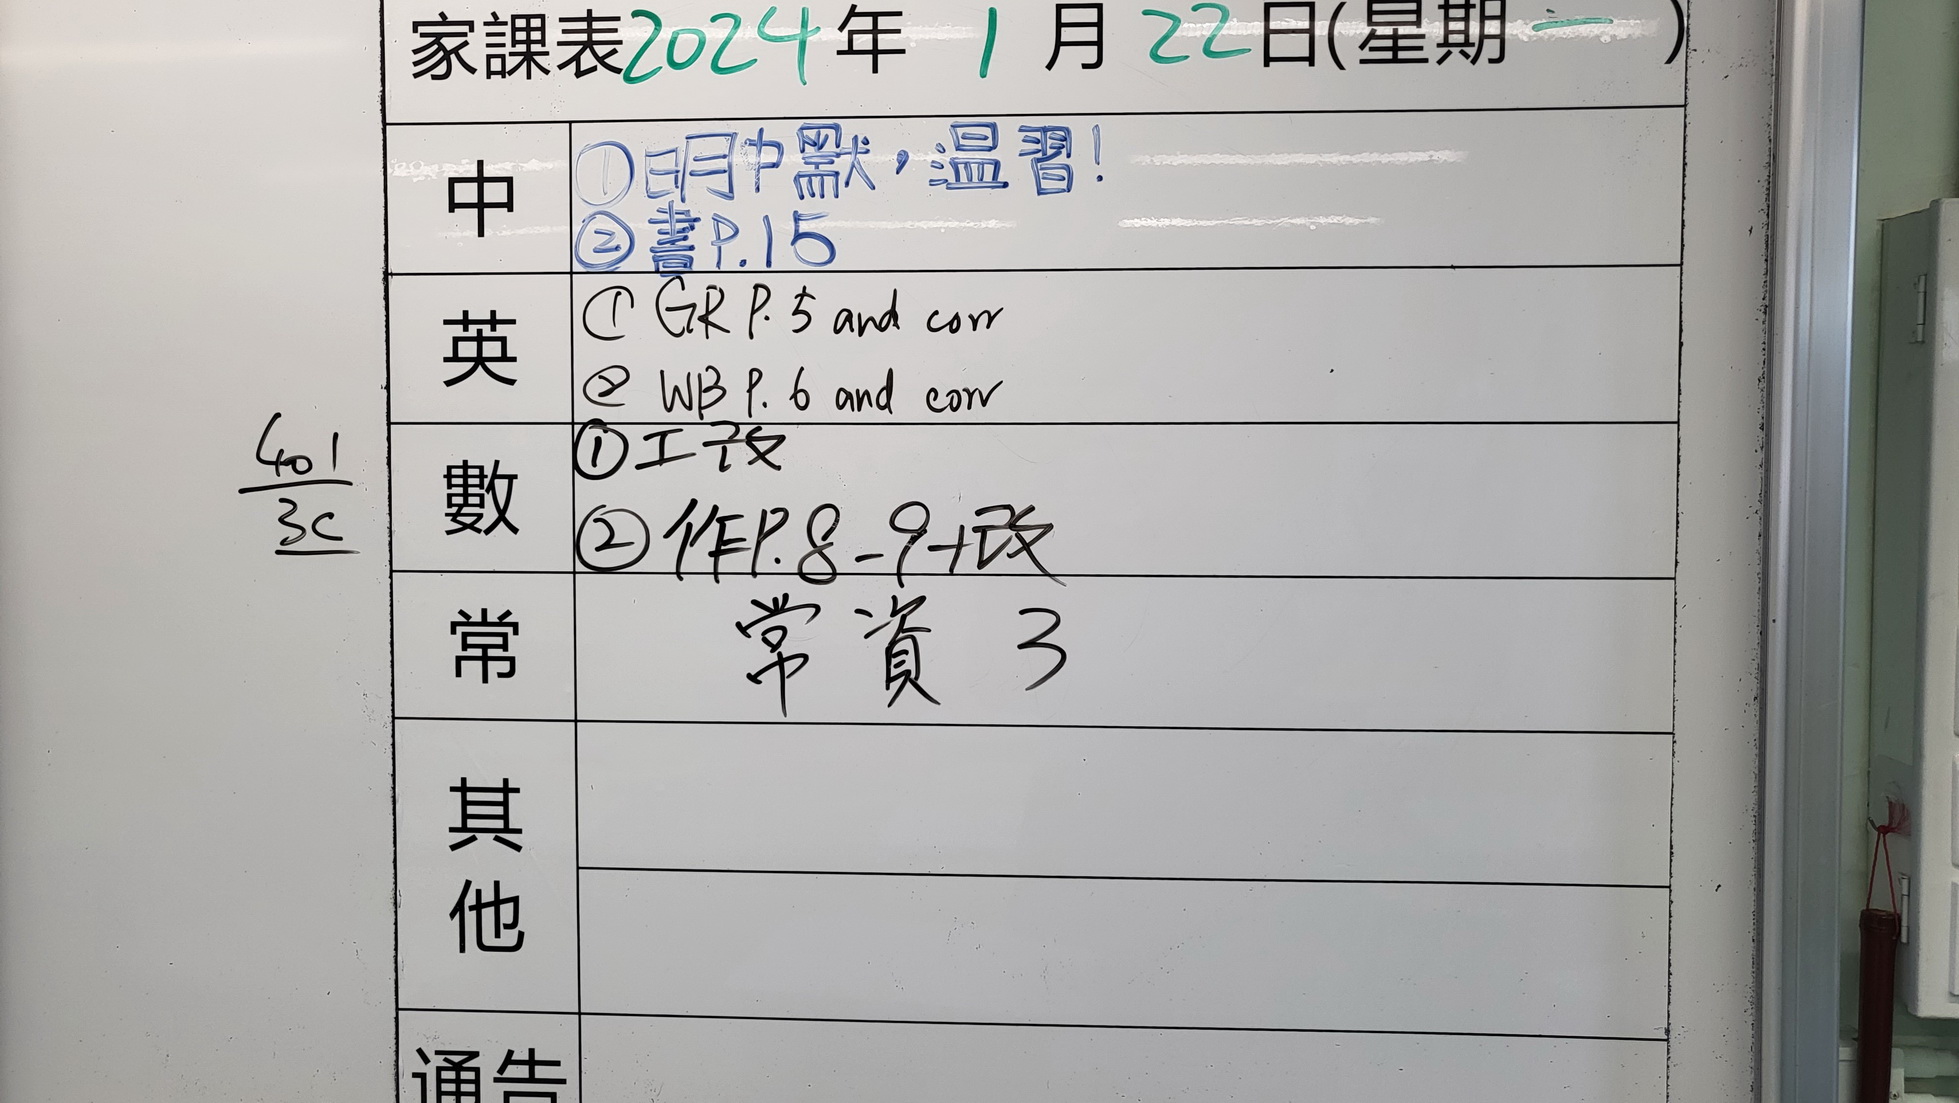 家課表2024年 1 月 22日(星期一)
中
①明中默，温習!
②書P.15
英
① GR P. 5 and corr
② WB P. 6 and corr
401
3C
數
①工改
②作P.8-9+改
常
常資 3
其他
通告